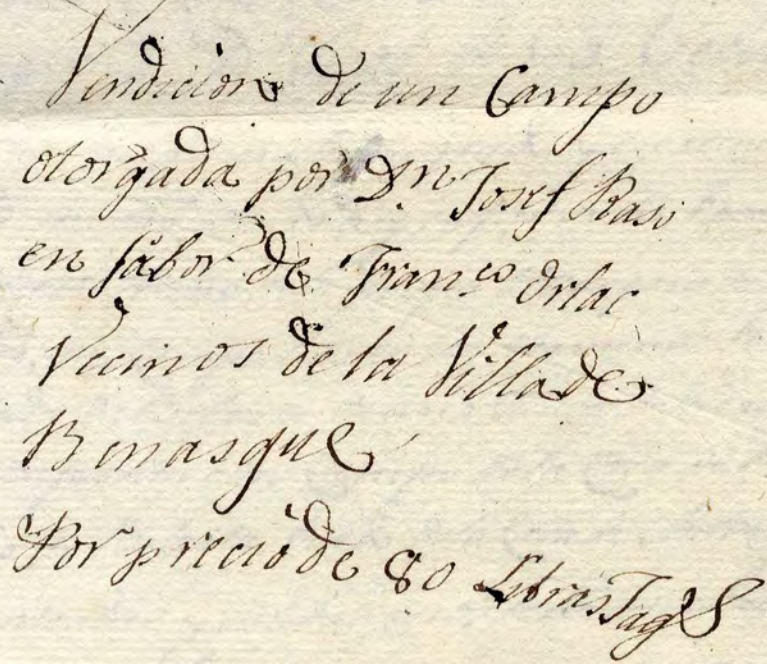 Vendicion de un Campo
otorgada por Dn. Josef Raso
en fabor de Franco. Orlac
Vecinos de la Villa de
Benasque
Por precio de 80 Libras Jaqs